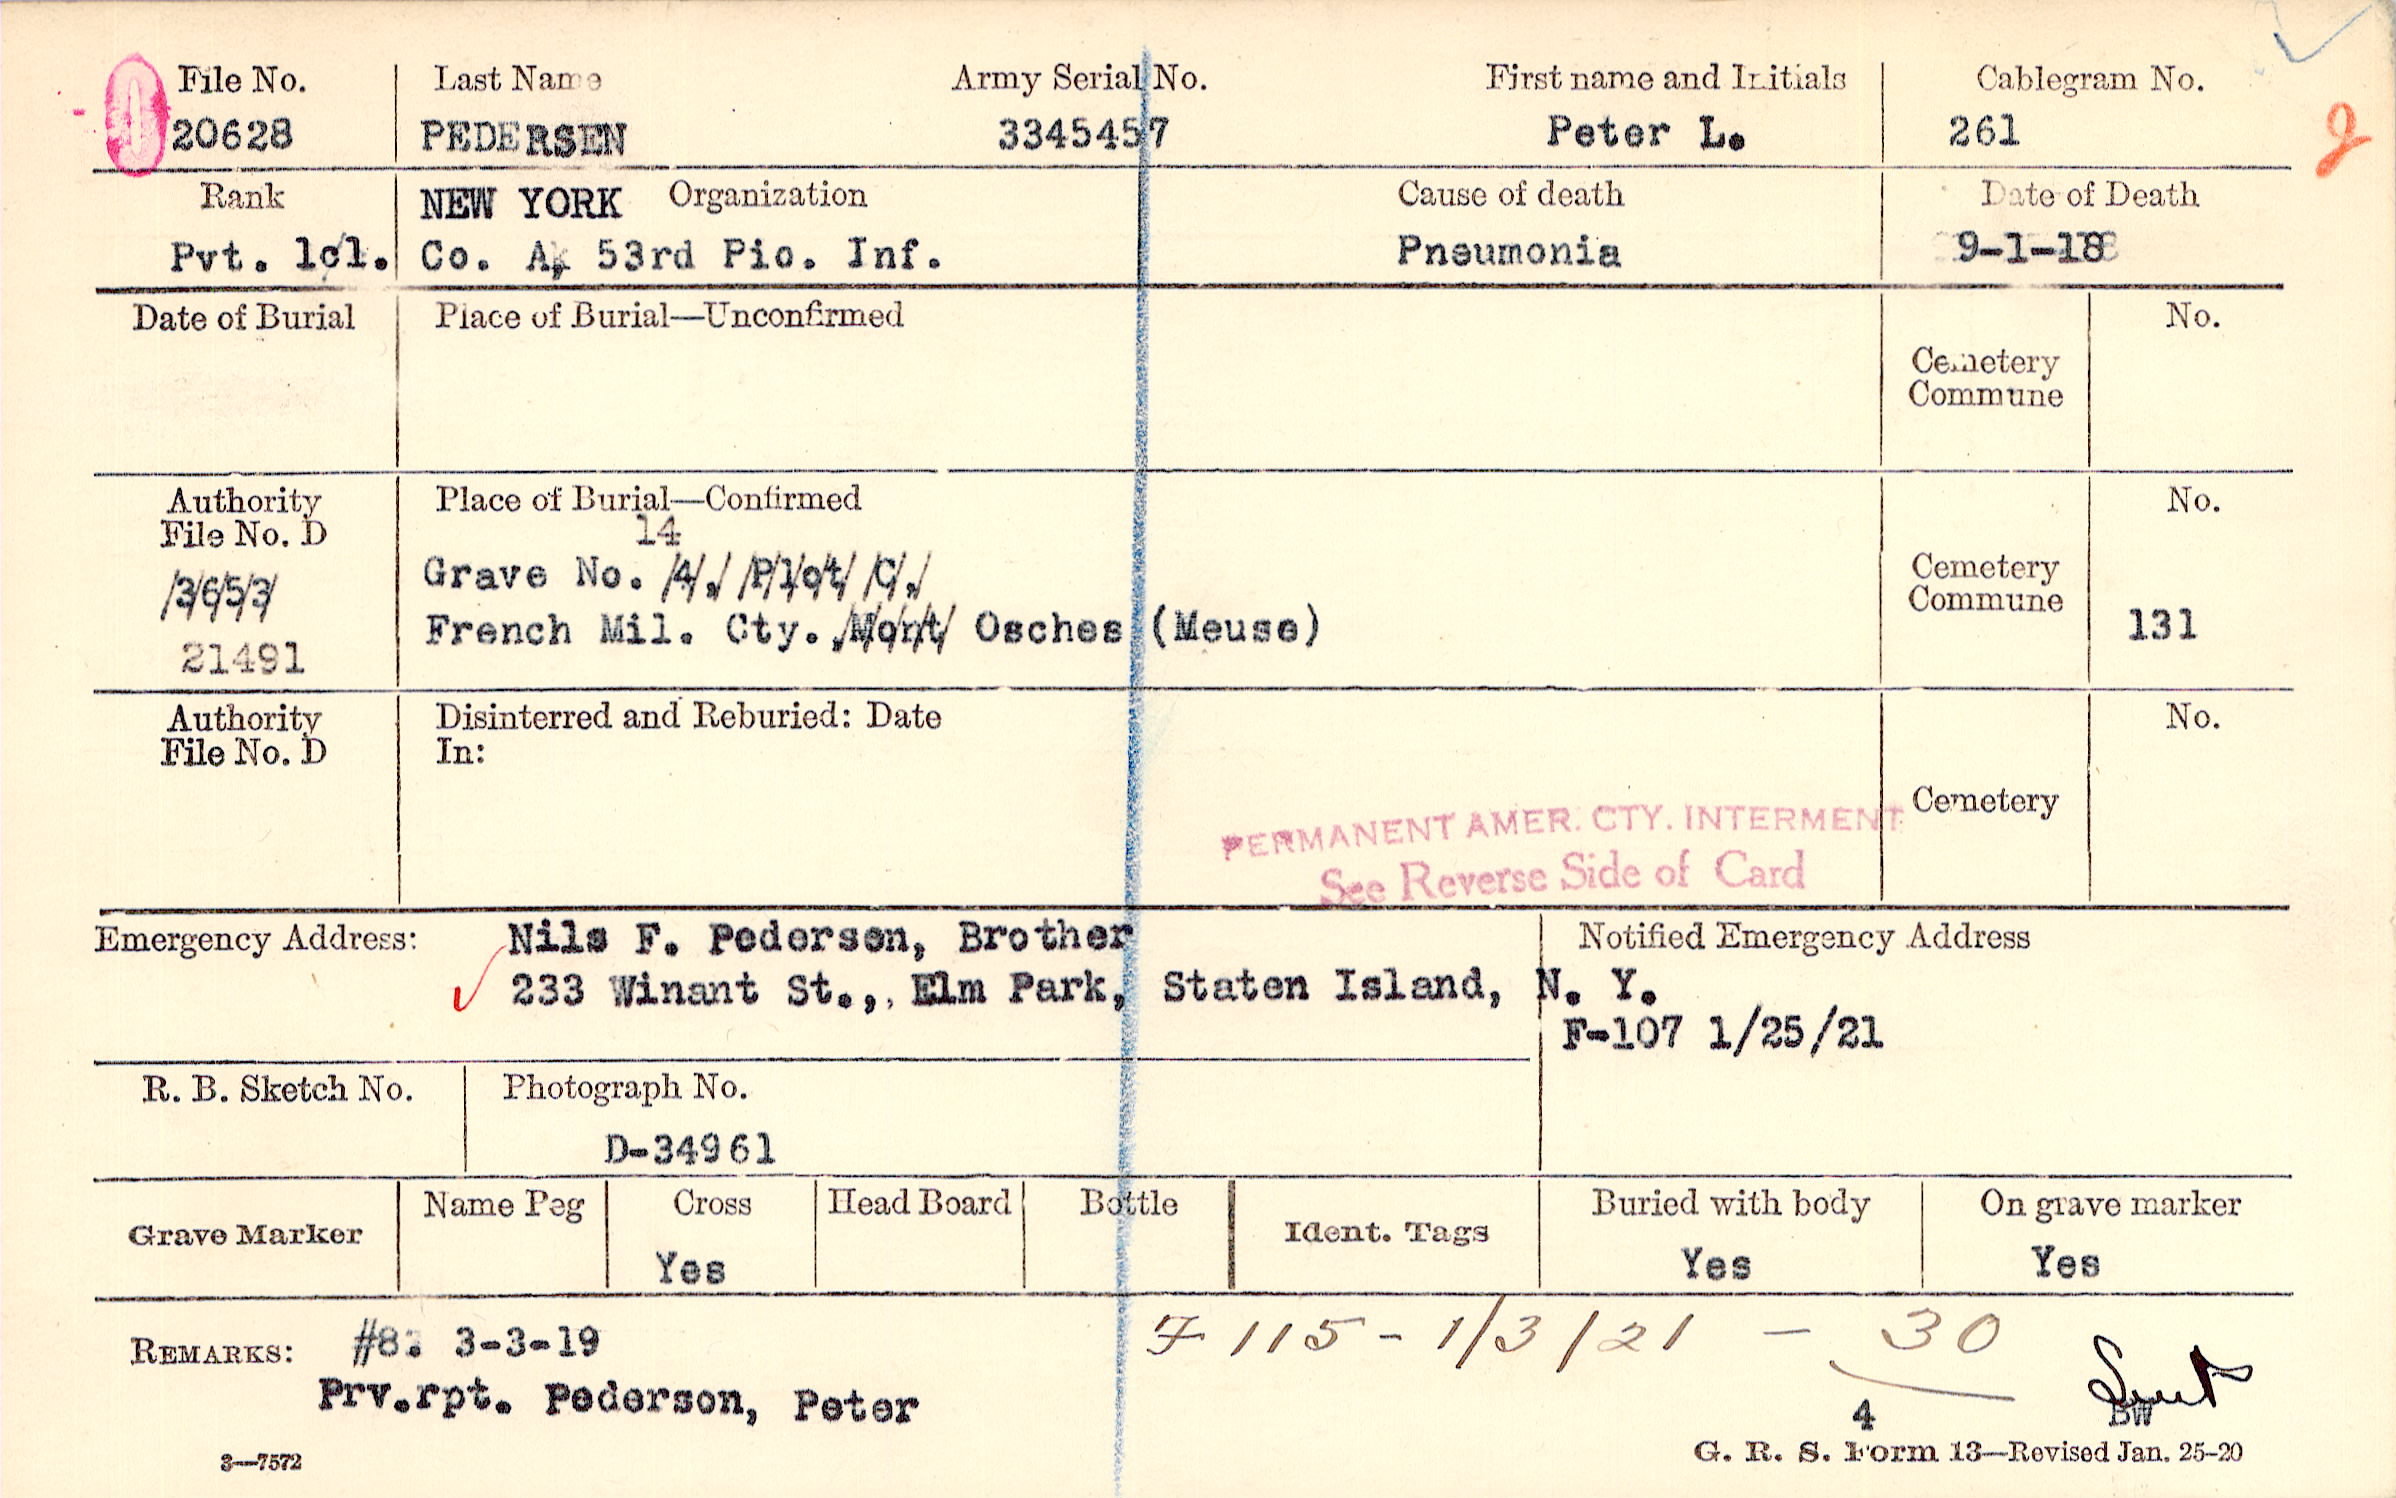 File No. Last Name Army Serial No. First name and Initials Cablegram No.
20628 PEDERSEN 3345457 Peter L. 261
Rank NEW YORK Organization Cause of death Date of Death
Pvt. 1cl. Co. A, 53rd Pio. Inf. Pneumonia 9-1-18
Date of Burial Place of Burial—Unconfirmed No.
Cemetery
Commune
Authority Place of Burial—Confirmed No.
File No. D 14
3653 Grave No. 4. Plot C. Cemetery
Commune
21491 French Mil. Cty. Mont Osches (Meuse) 131
Authority Disinterred and Reburied: Date No.
File No. D In:
Cemetery
PERMANENT AMER. CTY. INTERMENT
See Reverse Side of Card
Emergency Address: Nils F. Pedersen, Brother Notified Emergency Address
233 Winant St., Elm Park, Staten Island, N. Y.
F-107 1/25/21
R. B. Sketch No. Photograph No.
D-34961
Grave Marker Name Peg Cross Head Board Bottle Ident. Tags Buried with body On grave marker
Yes Yes Yes
REMARKS: #8. 3-3-19 F 115 - 1/3/21 - 30
Prv.rpt. Pederson, Peter
4 BW
3—7572 G. R. S. Form 13—Revised Jan. 25-20